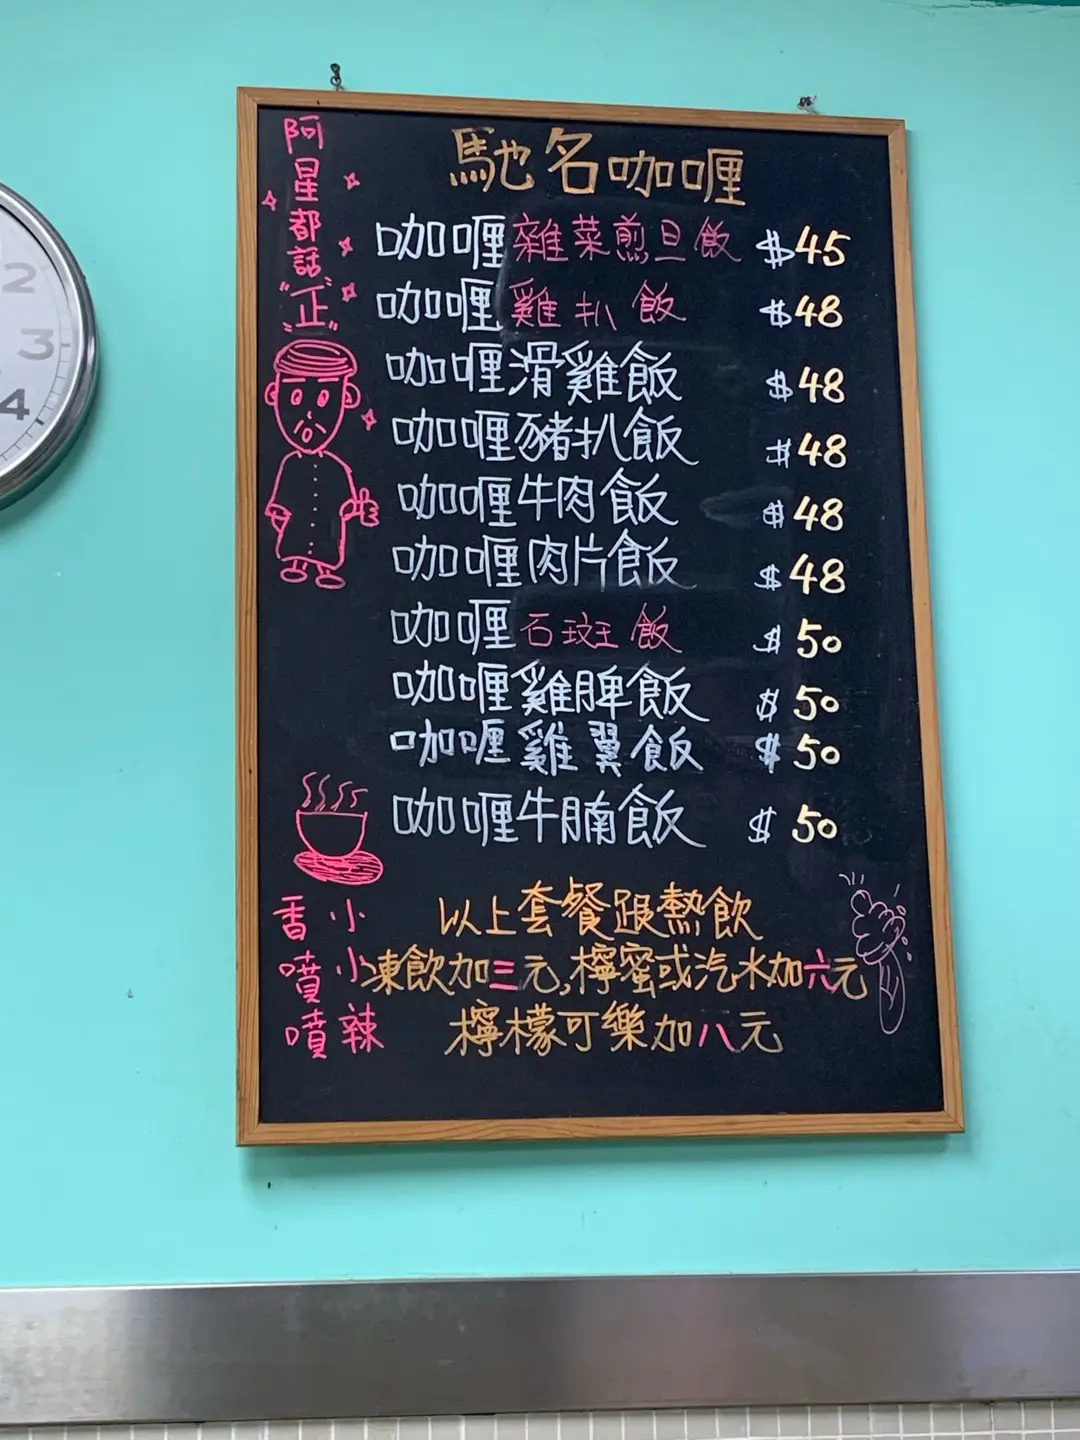 馳名咖喱
咖喱雜菜煎旦飯 $45
咖喱雞扒飯 $48
咖喱滑雞飯 $48
咖喱豬扒飯 $48
咖喱牛肉飯 $48
咖喱肉片飯 $48
咖喱石斑飯 $50
咖喱雞脾飯 $50
咖喱雞翼飯 $50
咖喱牛腩飯 $50
以上套餐跟熱飲
凍飲加三元,檸蜜或汽水加六元
檸檬可樂加八元
阿星都話"正"
小小辣
香噴噴
2
3
4